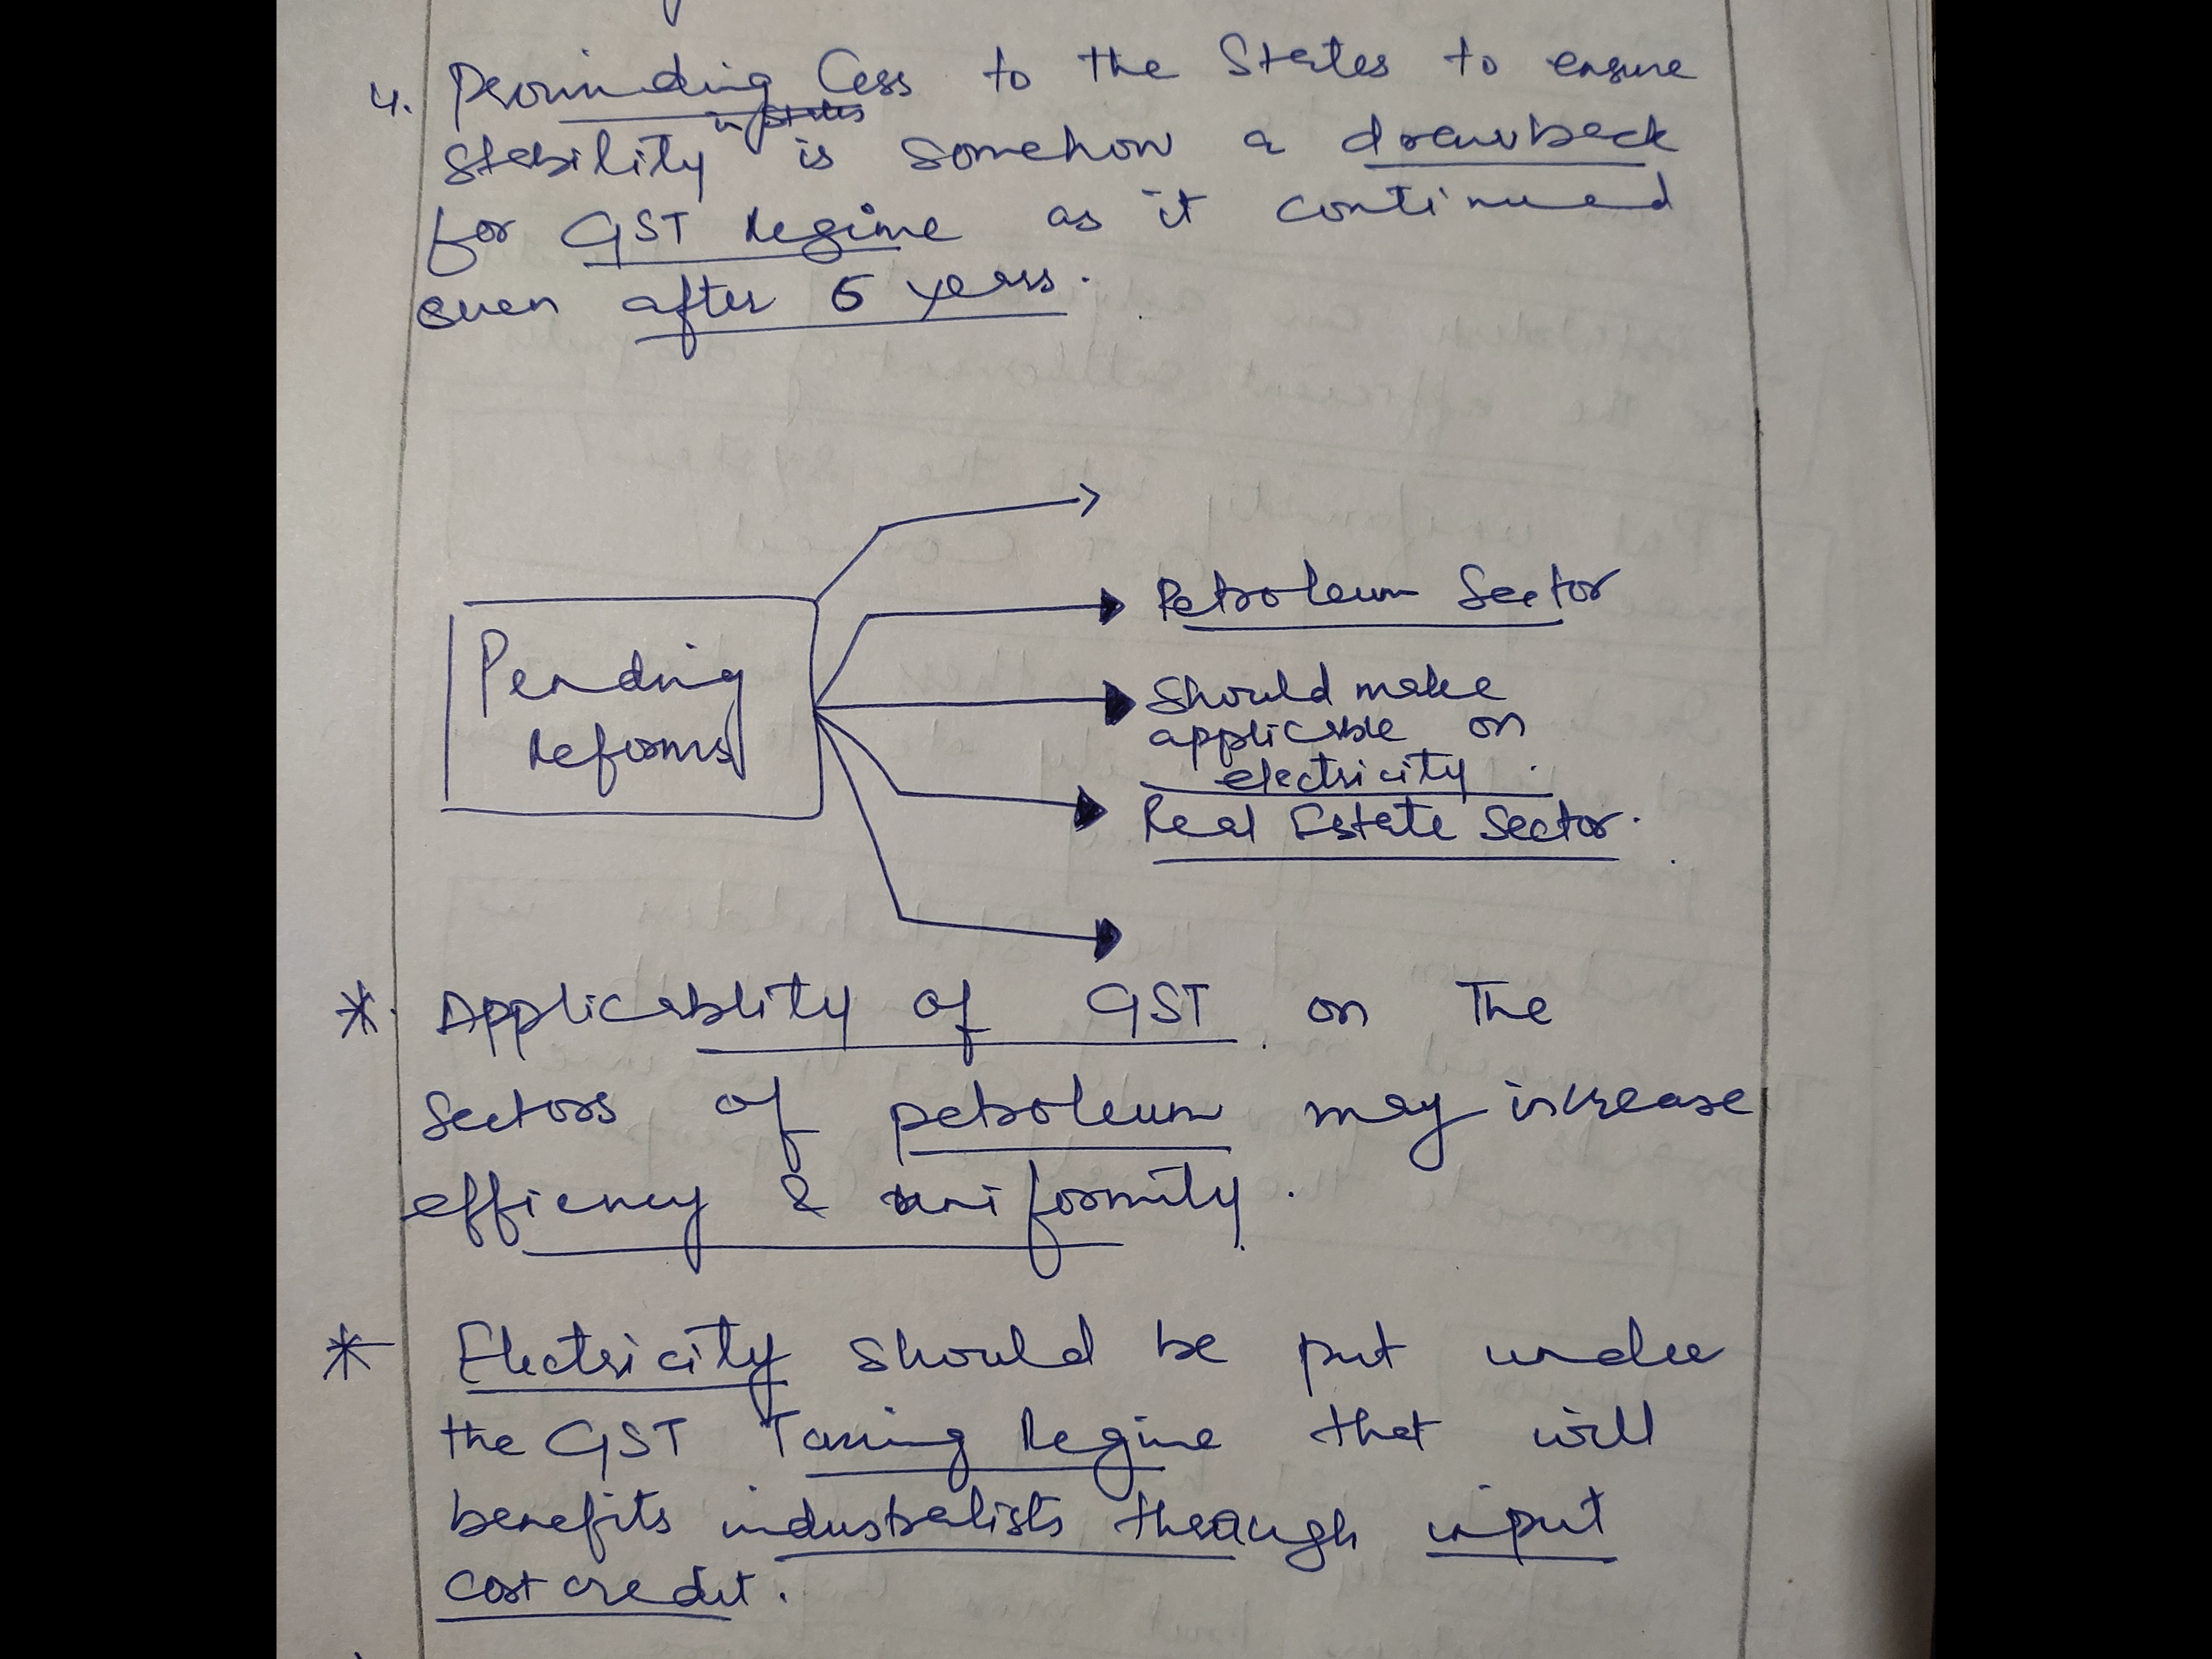 4. Perouinding Cess to the States to ensure
in states
stability is somehow a drawback
for GST Regime as it continued
even after 5 years.
Petroleum Sector
Pending
Reforms
Should make
applicable on
electricity.
Real Estate Sector.
* Applicablity of GST on the
Sectors of petroleum may increase
efficency & uniformity.
* Electricity should be put under
the GST Taxing Regime that will
benefits industralists through input
cost credit.